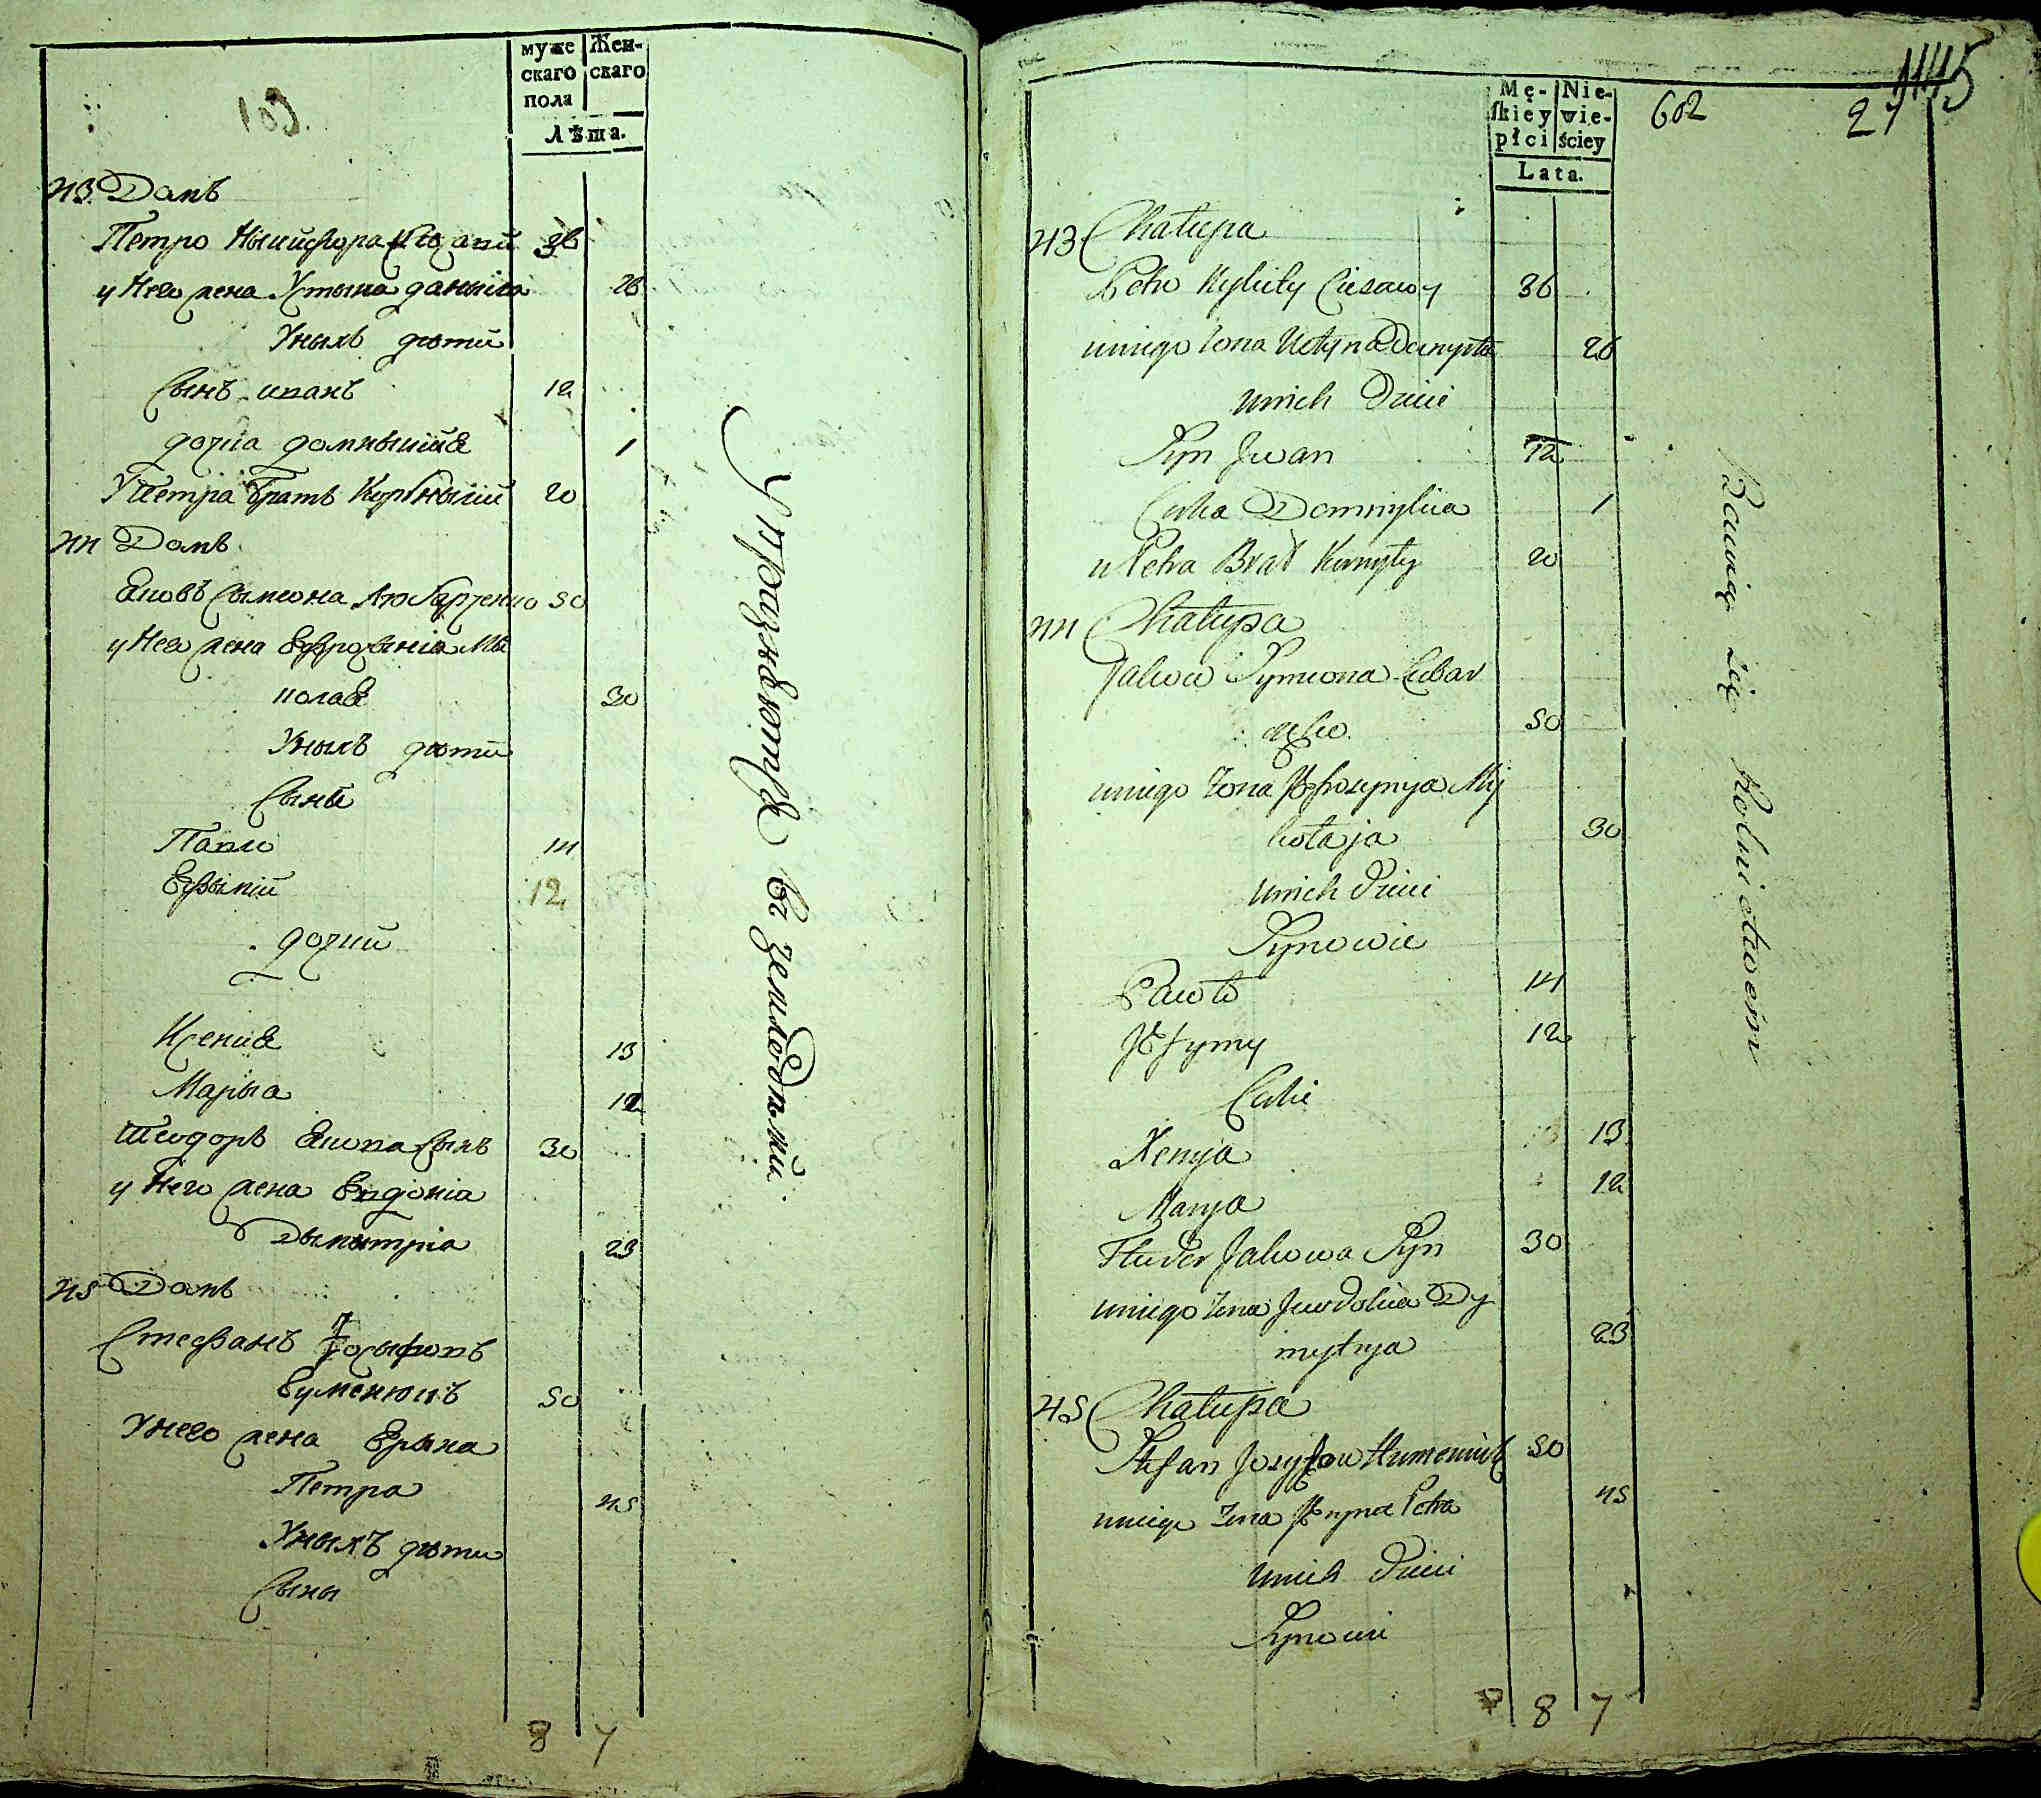 муже
скаго
пола
Жен-
скаго
Лѣта.
601
43 Домъ
Петро 36
у Него жена Устына данила 26
Уныхъ дѣти
Сынъ иванъ 12
дочка домныкиа 1
У Петра братъ Корнылий 20
44 Домъ
Яковъ Сымеона Любарченко 50
у Него жена Ефросыніа Мы
колаа 30
Уныхъ дѣти
Сыны
Павло 14
Ефымій 12
дочки
Ксениа 13
Марыа 12
Теодоръ Якова Сынъ 30
у Него жена Евдокіа
Дымытріа 23
45 Домъ
Стефанъ Іосыфовъ
50
Унего жена Ярына
Петра 45
Уныхъ дѣти
Сыны
8 7
Упражнѣются въ земледѣлий.
Mę-
skiey
płci
Nie-
wie-
ściey
Lata.
602
27
1145
43 Chałupa
Petro 36
uniego żona Ustyna Danyła 26
unich Dzieci
Syn Jwan 12
Corka Domnykia 1
u Petra Brat Kornyły 20
44 Chałupa
Jakow Symeona Lubar
czenko 50
uniego żona Jefrosynya My
kołaja 30
unich Dzieci
Synowie
Pawło 14
Jefymy 12
Corki
Xenya 13
Marya 12
Fteodor Jakowa Syn 30
uniego żona Jewdokia Dy
mytrya 23
45 Chałupa
Stefan Jozyfow Humeniuk 50
uniego żona Jaryna Petra 45
unich Dzieci
Synowie
8 7
Bawią się Rolnictwem